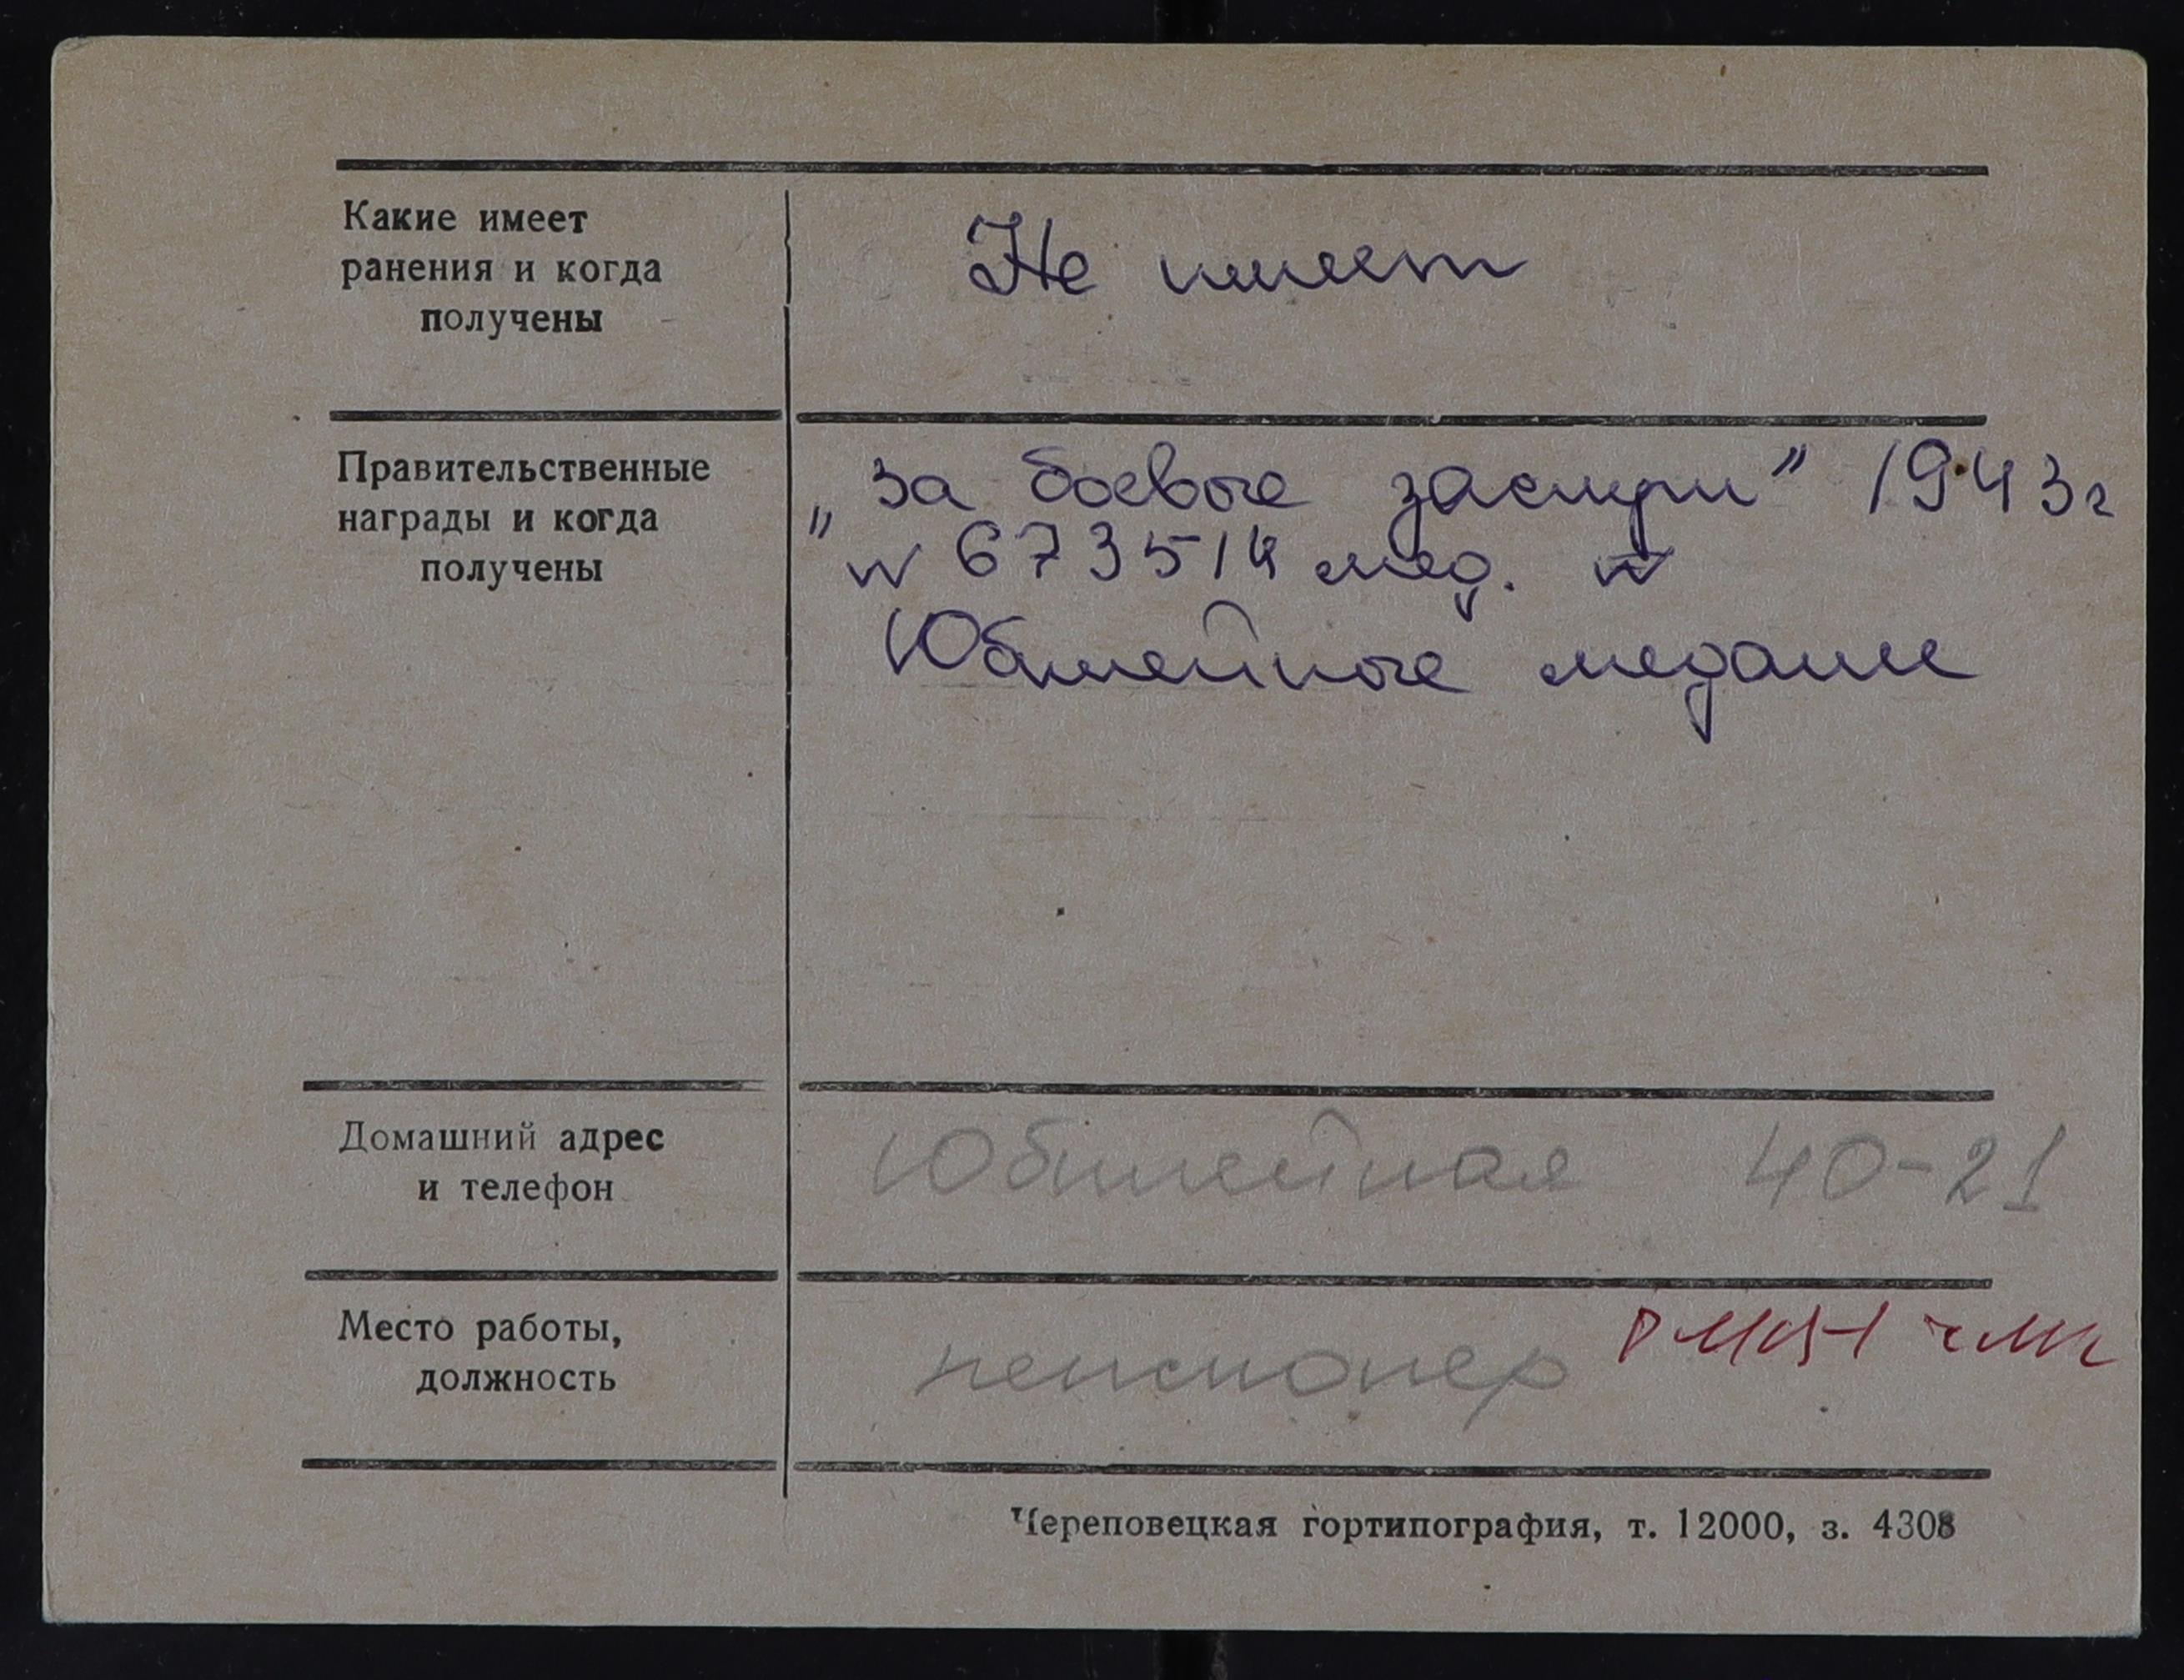 Какие имеет
ранения и когда
получены
Не имеет
Правительственные
награды и когда
получены
„За боевые заслуги" 1943г
N 673514 мед.
Юбилейные медали
Домашний адрес
и телефон
Юбилейная 40-21
Место работы,
должность
пенсионер
Череповецкая гортипография, т. 12000, з. 4308